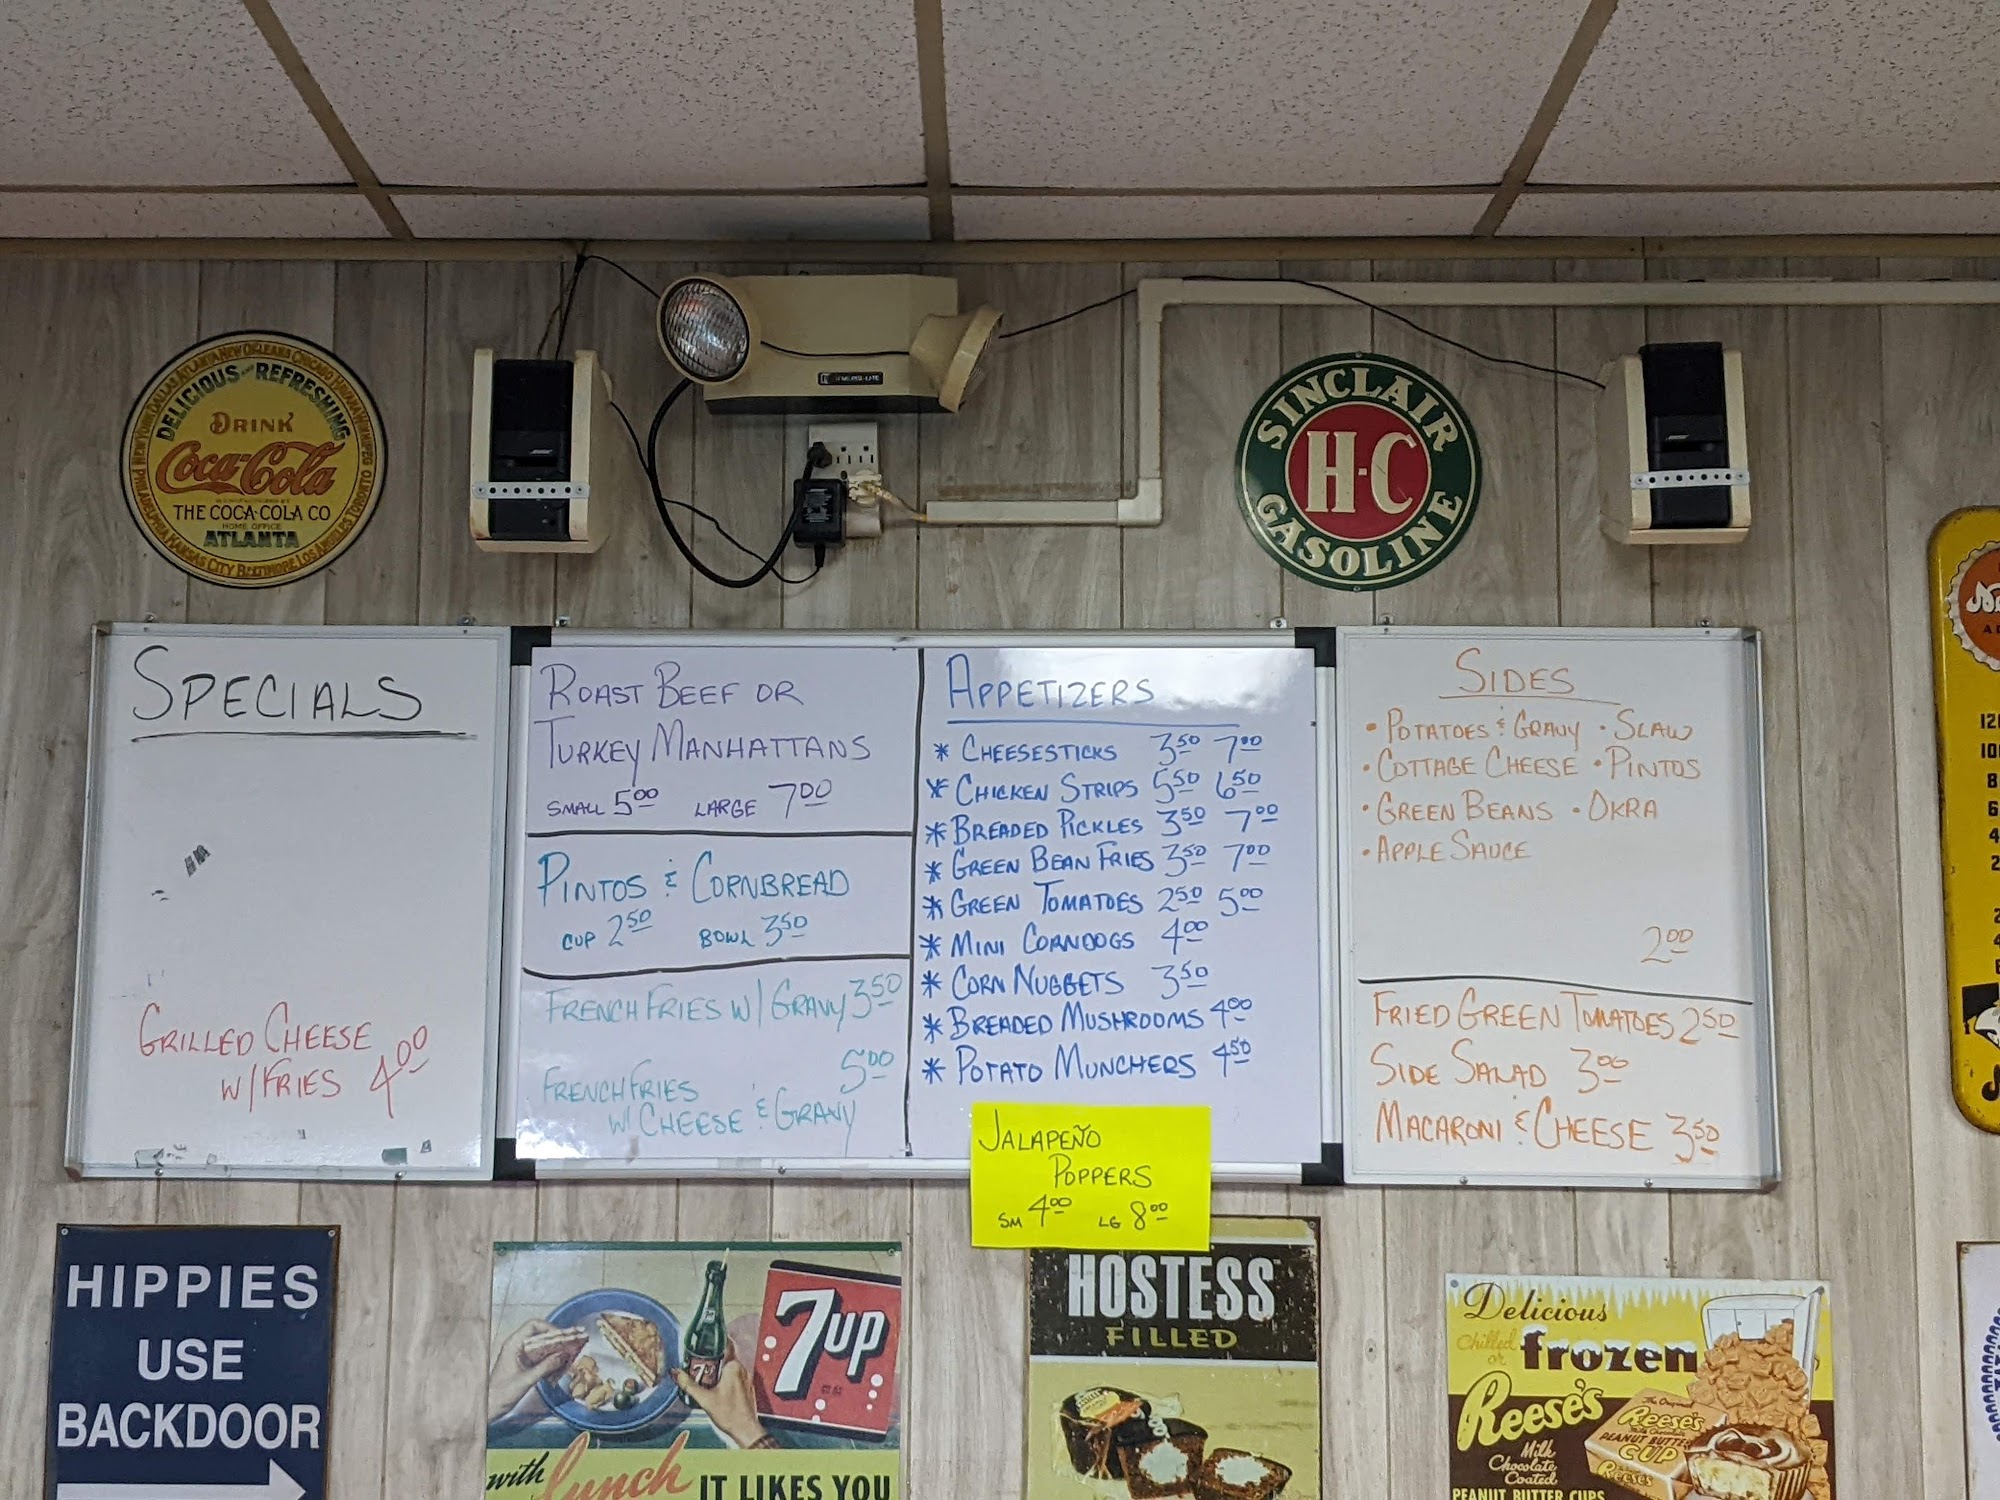 DELICIOUS AND REFRESHING
DRINK
Coca-Cola
THE COCA-COLA CO
HOME OFFICE
ATLANTA
BOSE
BOSE
SINCLAIR
H-C
GASOLINE
SPECIALS
GRILLED CHEESE
W/FRIES 4.00
ROAST BEEF OR
TURKEY MANHATTANS
SMALL 5.00 LARGE 7.00
PINTOS & CORNBREAD
CUP 2.50 BOWL 3.50
FRENCH FRIES W/ GRAVY 3.50
FRENCH FRIES 5.00
W/ CHEESE & GRAVY
APPETIZERS
* CHEESESTICKS 3.50 7.00
* CHICKEN STRIPS 5.50 6.50
* BREADED PICKLES 3.50 7.00
* GREEN BEAN FRIES 3.50 7.00
* GREEN TOMATOES 2.50 5.00
* MINI CORNDOGS 4.00
* CORN NUGGETS 3.50
* BREADED MUSHROOMS 4.00
* POTATO MUNCHERS 4.50
JALAPEÑO
POPPERS
SM 4.00 LG 8.00
SIDES
• POTATOES & GRAVY • SLAW
• COTTAGE CHEESE • PINTOS
• GREEN BEANS • OKRA
• APPLE SAUCE
2.00
FRIED GREEN TOMATOES 2.50
SIDE SALAD 3.00
MACARONI & CHEESE 3.50
HIPPIES
USE
BACKDOOR
7UP
with lunch IT LIKES YOU
HOSTESS
FILLED
Delicious
Chilled
or frozen
Reese's
Milk
Chocolate
Coated
PEANUT BUTTER CUPS
Reese's
PEANUT BUTTER
CUP
Reese's